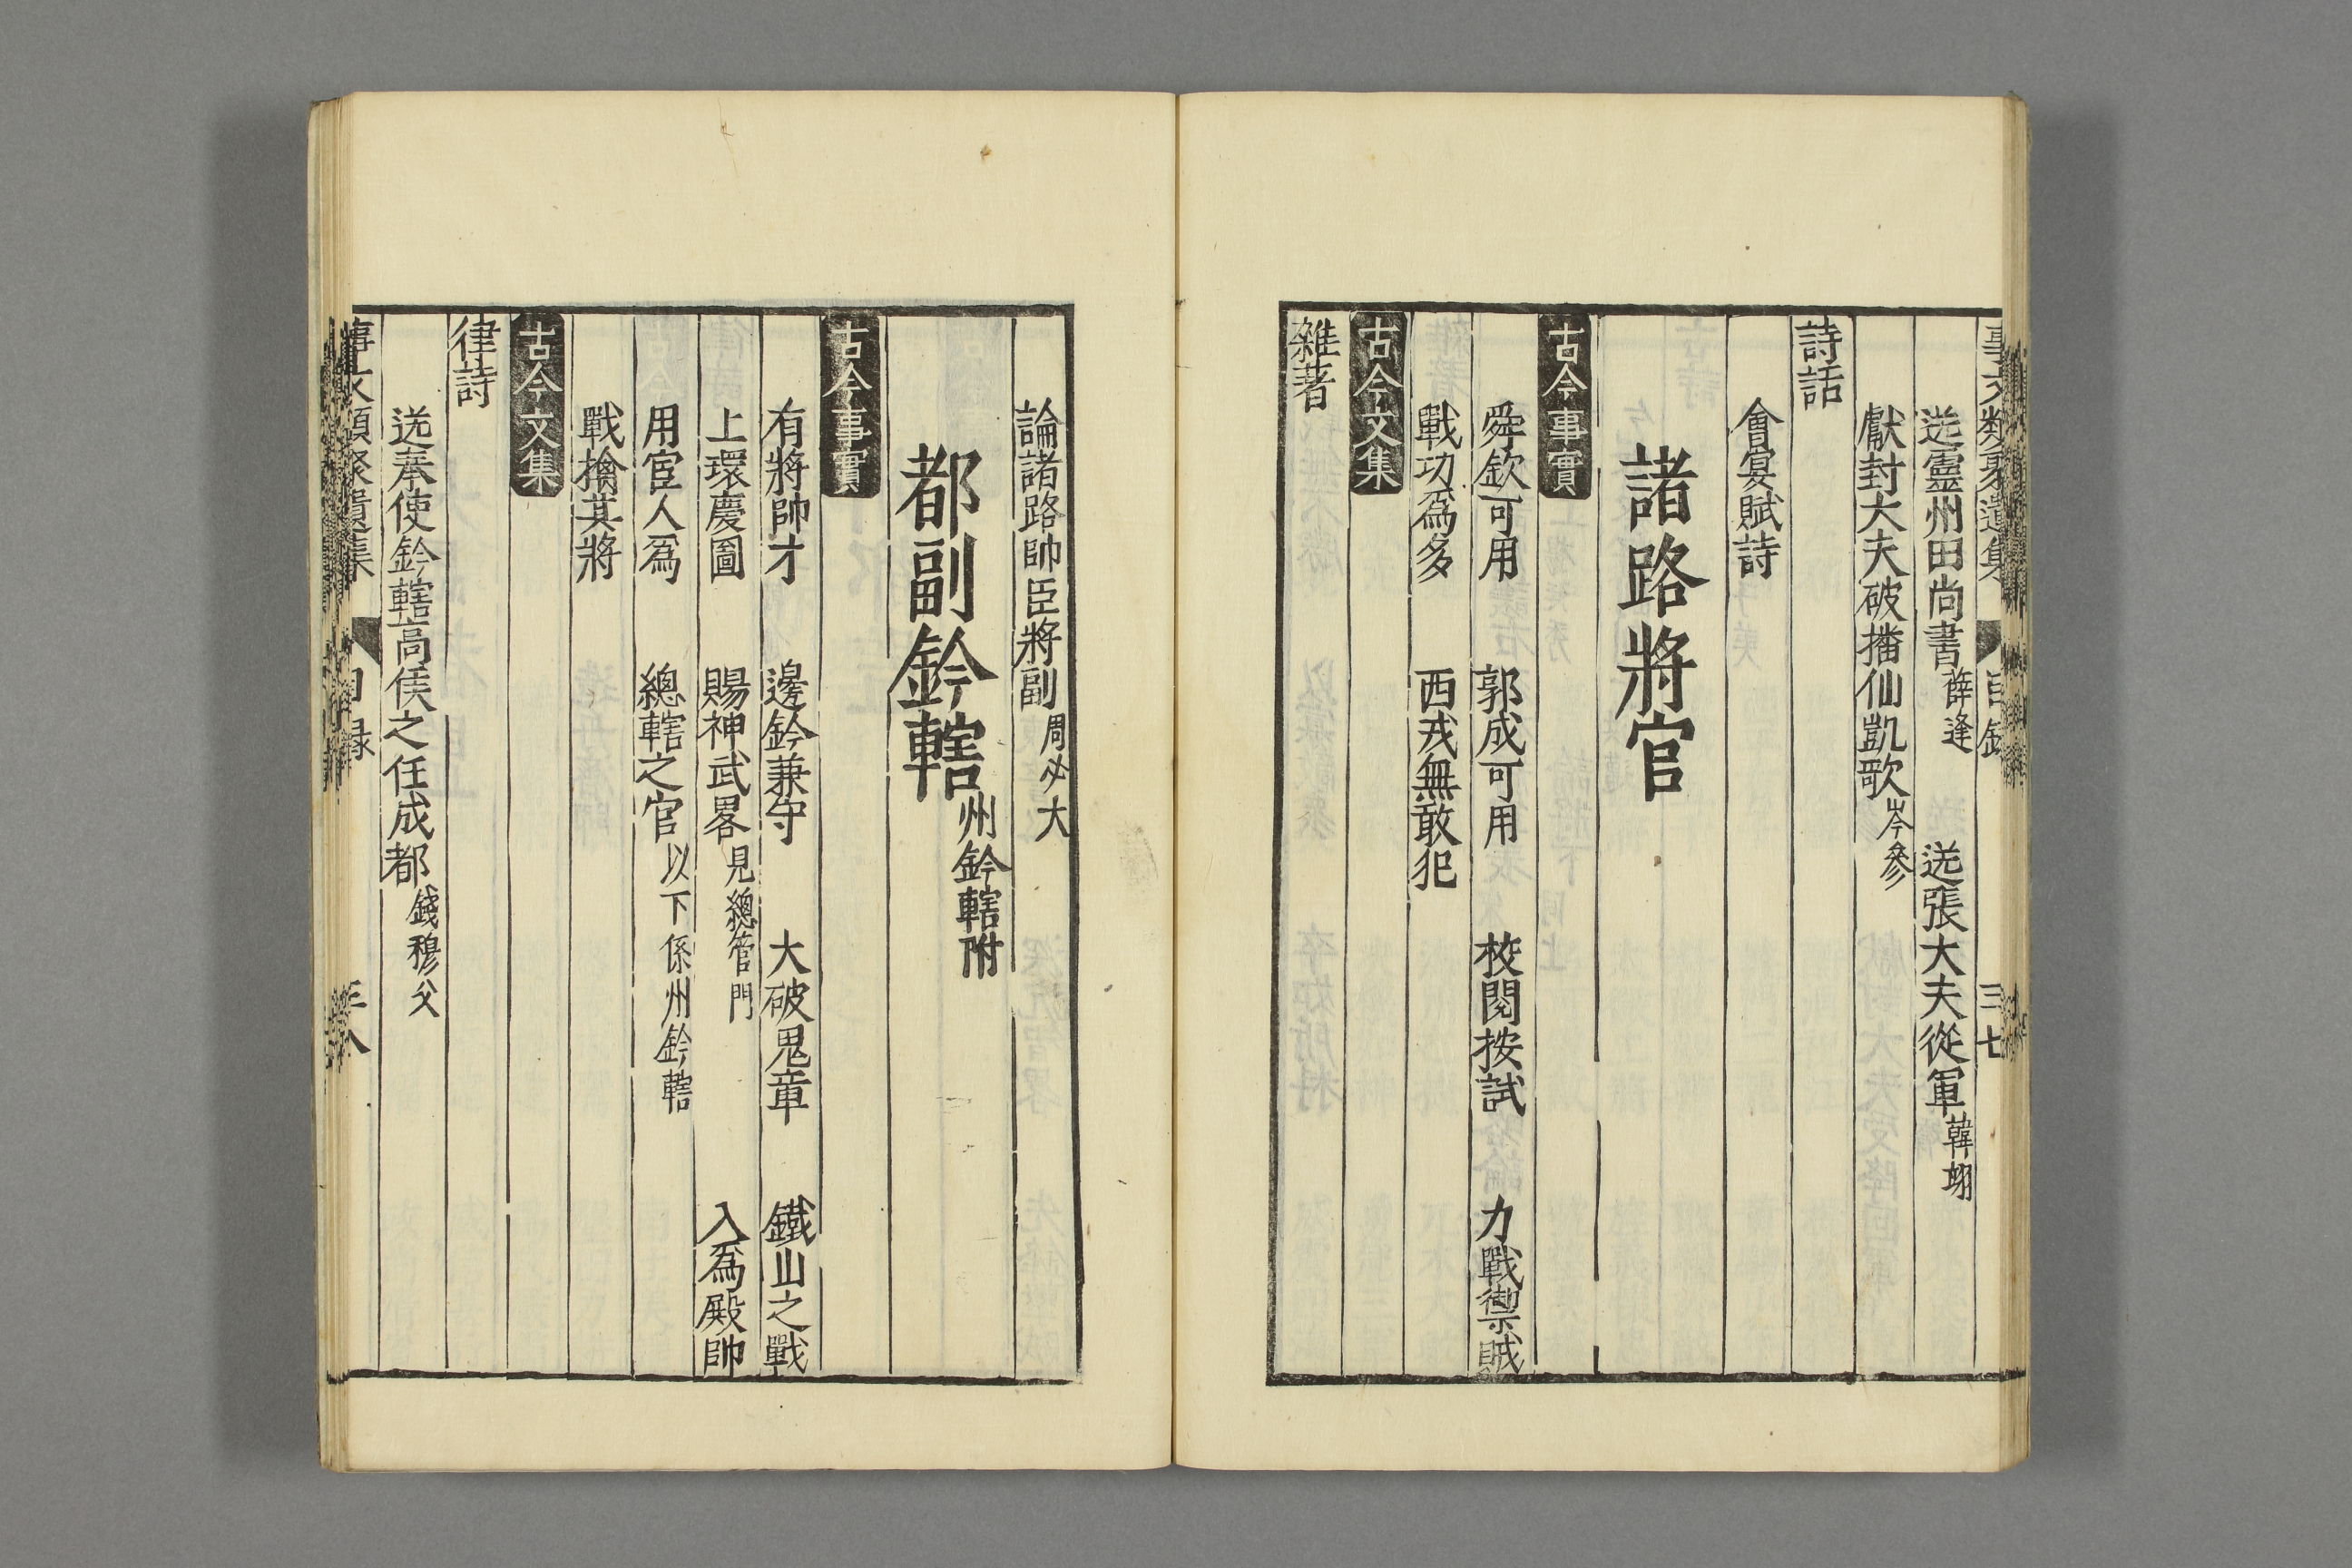 事文類聚遺集 目錄 三七
送靈州田尚書薛逢 送張大夫從軍韓翃
獻封大夫破播仙凱歌岑參
詩話
會宴賦詩
諸路將官
古今事實
舜欽可用 郭成可用 校閱按試 力戰禦賊
戰功爲多 西戎無敢犯
古今文集
雜著
論諸路帥臣將副周必大
都副鈐轄州鈐轄附
古今事實
有將帥才 邊鈐兼守 大破鬼章 鐵山之戰
上環慶圖 賜神武畧見總管門 入爲殿帥
用宦人爲 總轄之官以下係州鈐轄
戰擒其將
古今文集
律詩
送奉使鈐轄高侯之任成都錢穆父
事文類聚遺集 目録 三八